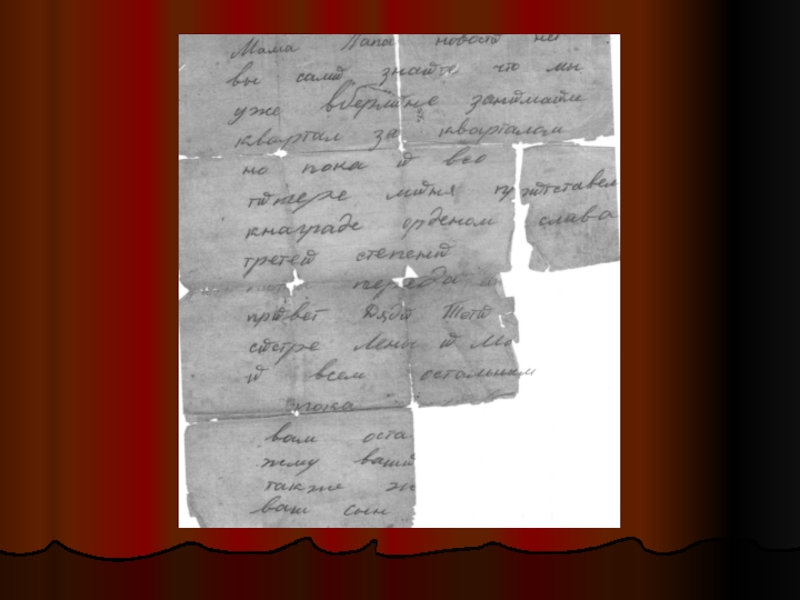 Мама Папа новостй не
вы самй знайте что мы
уже вберлйне занймайм
квартал за кварталом
но пока й всо
тйперь мйня прйтставел
кнаграде орденом слава
третей степенй
переда
прйвет Дядй Тотй
сйстре Лены й Ма
й всем остальным
пока
вам оста
жему вашй
также жй
ваш сын